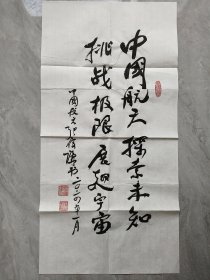 中國航天探索未知
挑战极限展翅宇宙
中國航天
书二〇二〇年一月